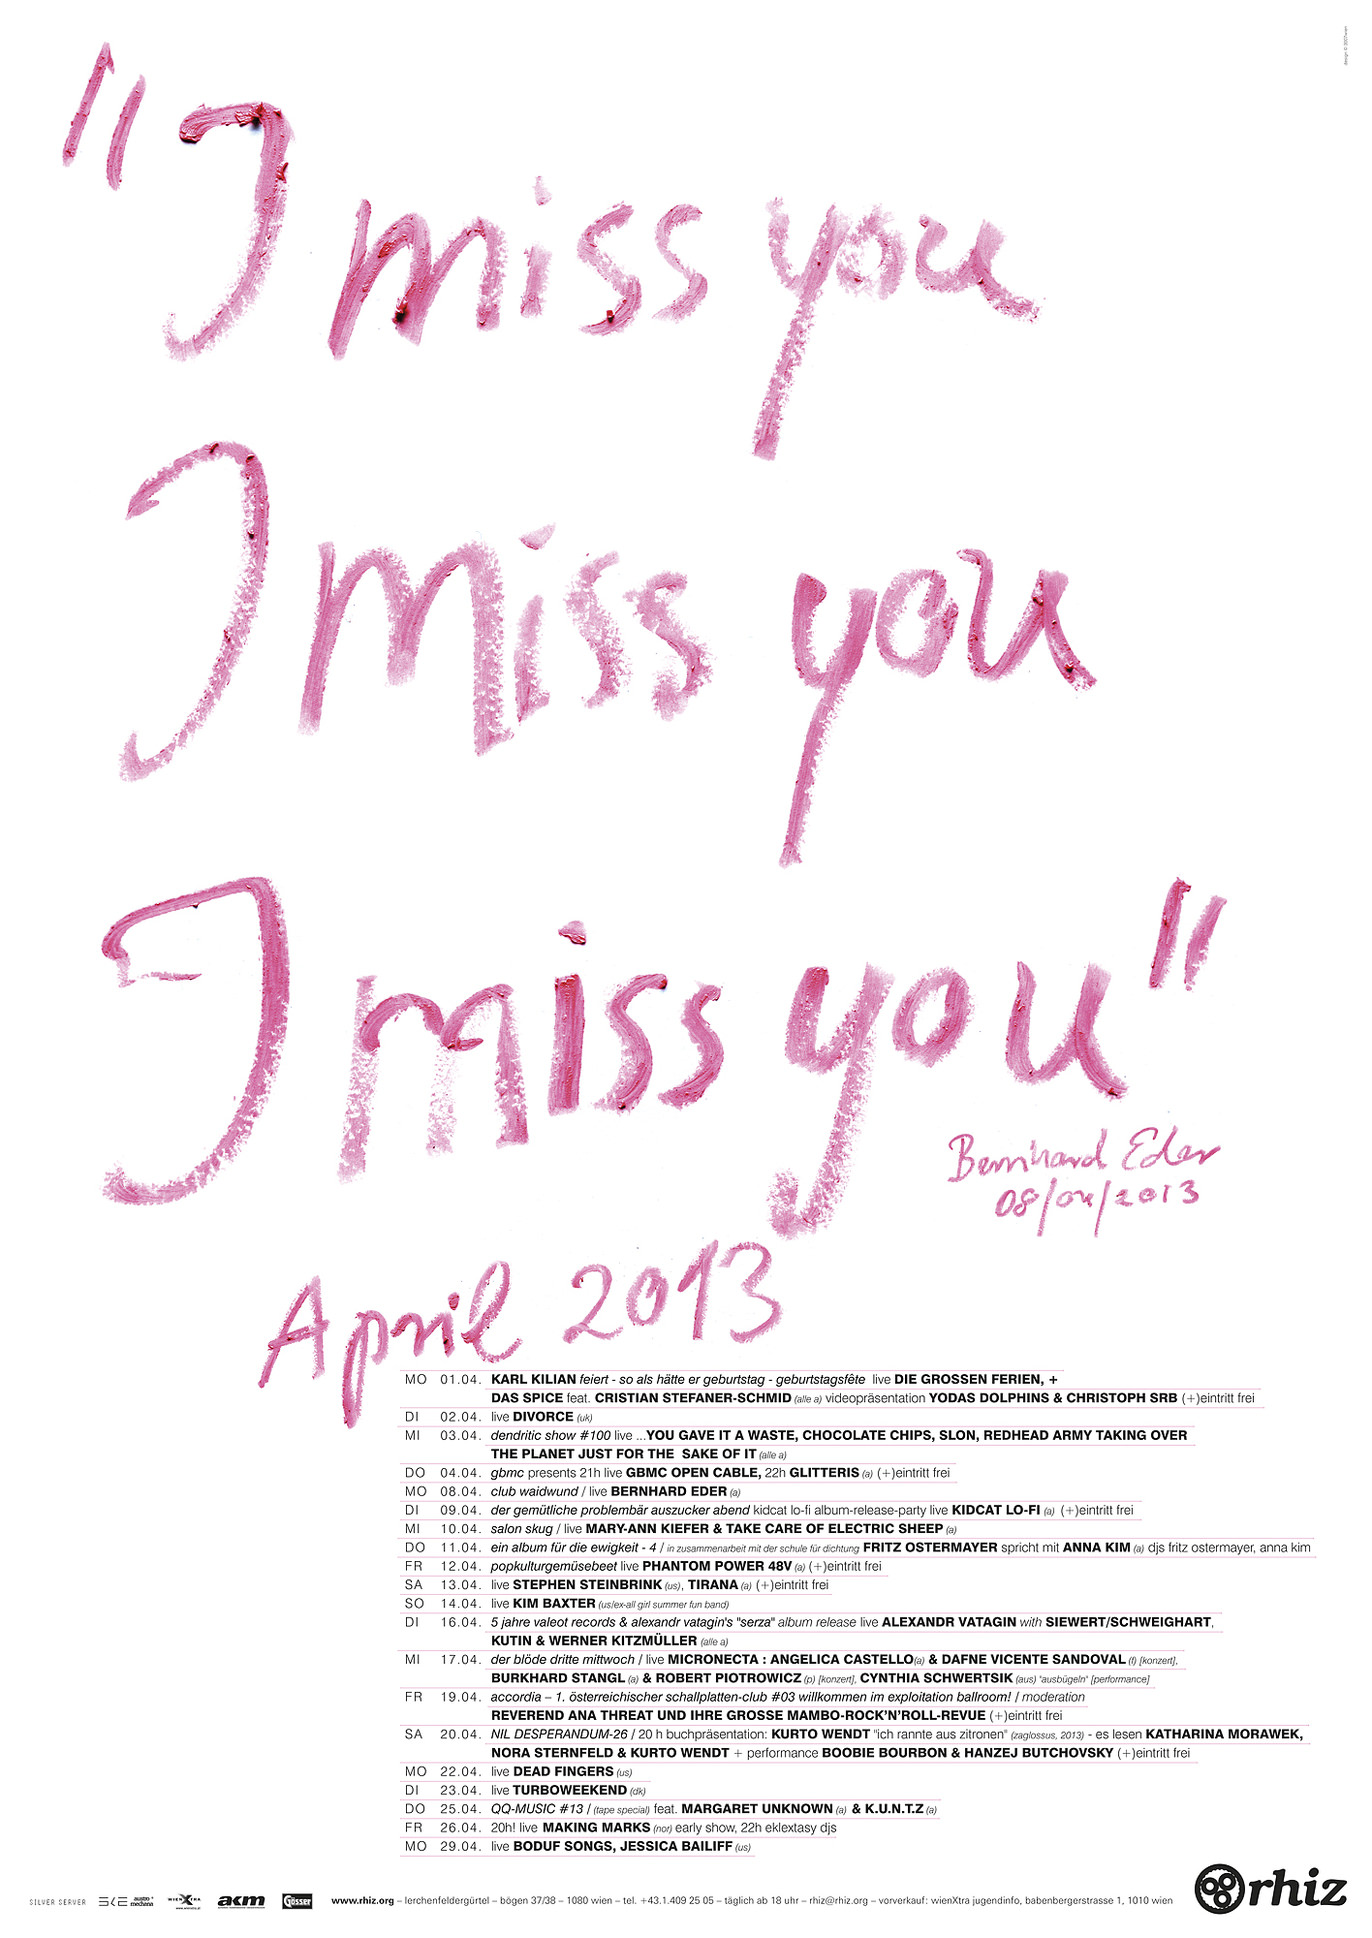 design © 3007wien
"I miss you
I miss you
I miss you"
Bernhard Eder
08/04/2013
April 2013
MO 01.04. KARL KILIAN feiert - so als hätte er geburtstag - geburtstagsfête live DIE GROSSEN FERIEN, +
DAS SPICE feat. CRISTIAN STEFANER-SCHMID (alle a) videopräsentation YODAS DOLPHINS & CHRISTOPH SRB (+)eintritt frei
DI 02.04. live DIVORCE (uk)
MI 03.04. dendritic show #100 live ...YOU GAVE IT A WASTE, CHOCOLATE CHIPS, SLON, REDHEAD ARMY TAKING OVER
THE PLANET JUST FOR THE SAKE OF IT (alle a)
DO 04.04. gbmc presents 21h live GBMC OPEN CABLE, 22h GLITTERIS (a) (+)eintritt frei
MO 08.04. club waidwund / live BERNHARD EDER (a)
DI 09.04. der gemütliche problembär auszucker abend kidcat lo-fi album-release-party live KIDCAT LO-FI (a) (+)eintritt frei
MI 10.04. salon skug / live MARY-ANN KIEFER & TAKE CARE OF ELECTRIC SHEEP (a)
DO 11.04. ein album für die ewigkeit - 4 / in zusammenarbeit mit der schule für dichtung FRITZ OSTERMAYER spricht mit ANNA KIM (a) djs fritz ostermayer, anna kim
FR 12.04. popkulturgemüsebeet live PHANTOM POWER 48V (a) (+)eintritt frei
SA 13.04. live STEPHEN STEINBRINK (us), TIRANA (a) (+)eintritt frei
SO 14.04. live KIM BAXTER (us/ex-all girl summer fun band)
DI 16.04. 5 jahre valeot records & alexandr vatagin's "serza" album release live ALEXANDR VATAGIN with SIEWERT/SCHWEIGHART,
KUTIN & WERNER KITZMÜLLER (alle a)
MI 17.04. der blöde dritte mittwoch / live MICRONECTA : ANGELICA CASTELLO(a) & DAFNE VICENTE SANDOVAL (f) [konzert],
BURKHARD STANGL (a) & ROBERT PIOTROWICZ (p) [konzert], CYNTHIA SCHWERTSIK (aus) "ausbügeln" [performance]
FR 19.04. accordia – 1. österreichischer schallplatten-club #03 willkommen im exploitation ballroom! / moderation
REVEREND ANA THREAT UND IHRE GROSSE MAMBO-ROCK'N'ROLL-REVUE (+)eintritt frei
SA 20.04. NIL DESPERANDUM-26 / 20 h buchpräsentation: KURTO WENDT "ich rannte aus zitronen" (zaglossus, 2013) - es lesen KATHARINA MORAWEK,
NORA STERNFELD & KURTO WENDT + performance BOOBIE BOURBON & HANZEJ BUTCHOVSKY (+)eintritt frei
MO 22.04. live DEAD FINGERS (us)
DI 23.04. live TURBOWEEKEND (dk)
DO 25.04. QQ-MUSIC #13 / (tape special) feat. MARGARET UNKNOWN (a) & K.U.N.T.Z (a)
FR 26.04. 20h! live MAKING MARKS (nor) early show, 22h eklextasy djs
MO 29.04. live BODUF SONGS, JESSICA BAILIFF (us)
SILVER SERVER SKE austro mechana WIENXTRA akm Gösser www.rhiz.org – lerchenfeldergürtel – bögen 37/38 – 1080 wien – tel. +43.1.409 25 05 – täglich ab 18 uhr – rhiz@rhiz.org – vorverkauf: wienXtra jugendinfo, babenbergerstrasse 1, 1010 wien rhiz